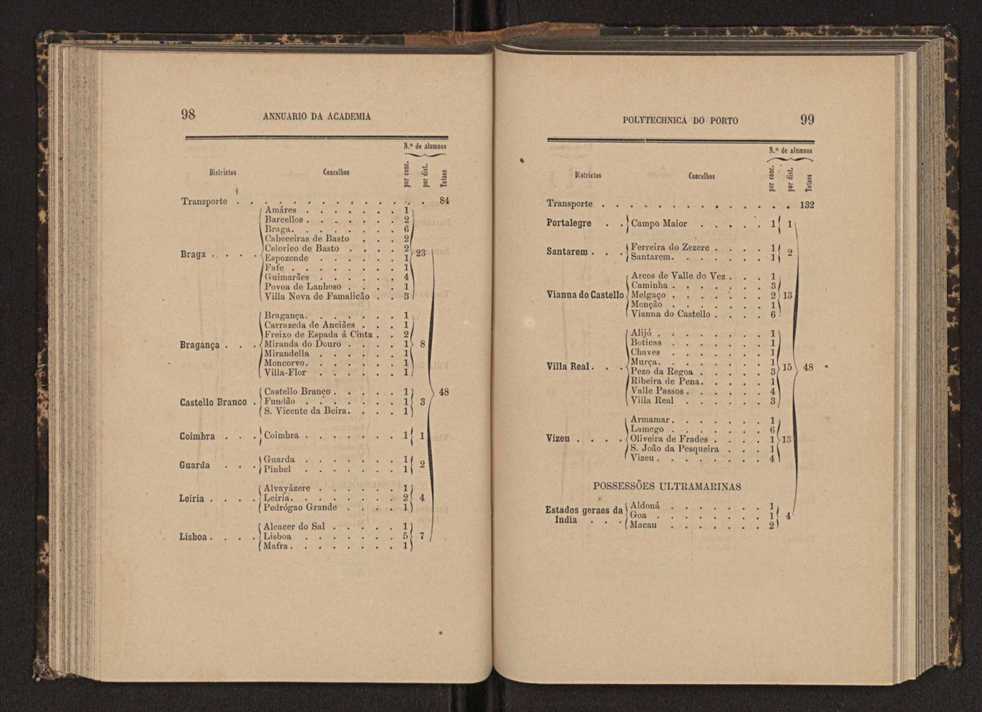 98 ANNUARIO DA ACADEMIA
N.º de alumnos
Districtos Concelhos por conc. por dist. Totaes
Transporte . . . . . . . . . . . . . . 84
Amáres . . . . . . . 1
Barcellos . . . . . . . 2
Braga. . . . . . . . 6
Cabeceiras de Basto . . . 2
Celorico de Basto . . . . 2
Braga . . . . 23
Espozende . . . . . . 1
Fafe . . . . . . . . 1
Guimarães . . . . . . 4
Povoa de Lanhoso . . . . 1
Villa Nova de Famalicão . . 3
Bragança. . . . . . . 1
Carrazeda de Anciães . . . 1
Freixo de Espada á Cinta . . 2
Bragança . . . Miranda do Douro . . . . 1 8
Mirandella . . . . . . 1
Moncorvo. . . . . . . 1
Villa-Flor . . . . . . 1
48
Castello Branco . . . . . 1
Castello Branco . Fundão . . . . . . . 1 3
S. Vicente da Beira. . . . 1
Coimbra . . . Coimbra . . . . . . . 1 1
Guarda . . . . . . . 1
Guarda . . . 2
Pinhel . . . . . . . 1
Alvayázere . . . . . . 1
Leiria . . . . Leiria. . . . . . . . 2 4
Pedrógao Grande . . . . 1
Alcacer do Sal . . . . . 1
Lisboa . . . . Lisboa . . . . . . . 5 7
Mafra . . . . . . . . 1
POLYTECHNICA DO PORTO 99
N.º de alumnos
Districtos Concelhos por conc. por dist. Totaes
Transporte . . . . . . . . . . . . . . 132
Portalegre . . Campo Maior . . . . . 1 1
Ferreira do Zezere . . . . 1
Santarem . . . 2
Santarem. . . . . . . 1
Arcos de Valle do Vez . . . 1
Caminha . . . . . . . 3
Vianna do Castello Melgaço . . . . . . . 2 13
Monção . . . . . . . 1
Vianna do Castello . . . . 6
Alijó . . . . . . . . 1
Boticas . . . . . . . 1
Chaves . . . . . . . 1
Murça. . . . . . . . 1
Villa Real . . . 15 48
Pezo da Regoa . . . . . 3
Ribeira de Pena. . . . . 1
Valle Passos . . . . . . 4
Villa Real . . . . . . 3
Armamar. . . . . . . 1
Lamego . . . . . . . 6
Vizeu . . . . Oliveira de Frades . . . . 1 13
S. João da Pesqueira . . . 1
Vizeu . . . . . . . . 4
POSSESSÕES ULTRAMARINAS
Estados geraes da Aldoná . . . . . . . 1
India . . . Goa . . . . . . . . 1 4
Macau . . . . . . . 2